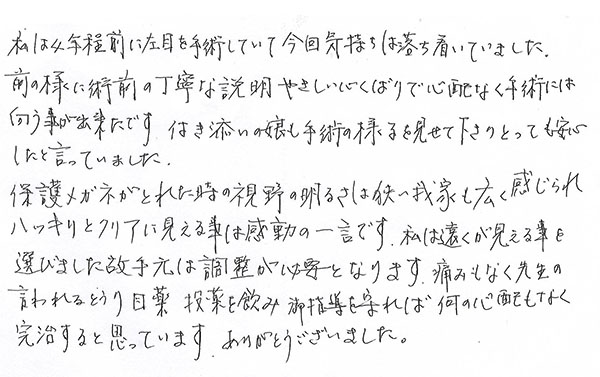 私は4年程前に左目を手術していて今回気持ちは落ち着いていました.
前の様に術前の丁寧な説明やさしい心くばりで心配なく手術には
向う事が出来たです. 付き添いの娘も手術の様子を見せて下さりとっても安心
したと言っていました.
保護メガネがとれた時の視野の明るさは狭い我家も広く感じられ
ハッキリとクリアに見える事は感動の一言です. 私は遠くが見える事を
選びました故手元は調整が必要となります. 痛みもなく先生の
言われるとうり目薬 投薬を飲み 御指導を守れば 何の心配もなく
完治すると思っています. ありがとうございました。